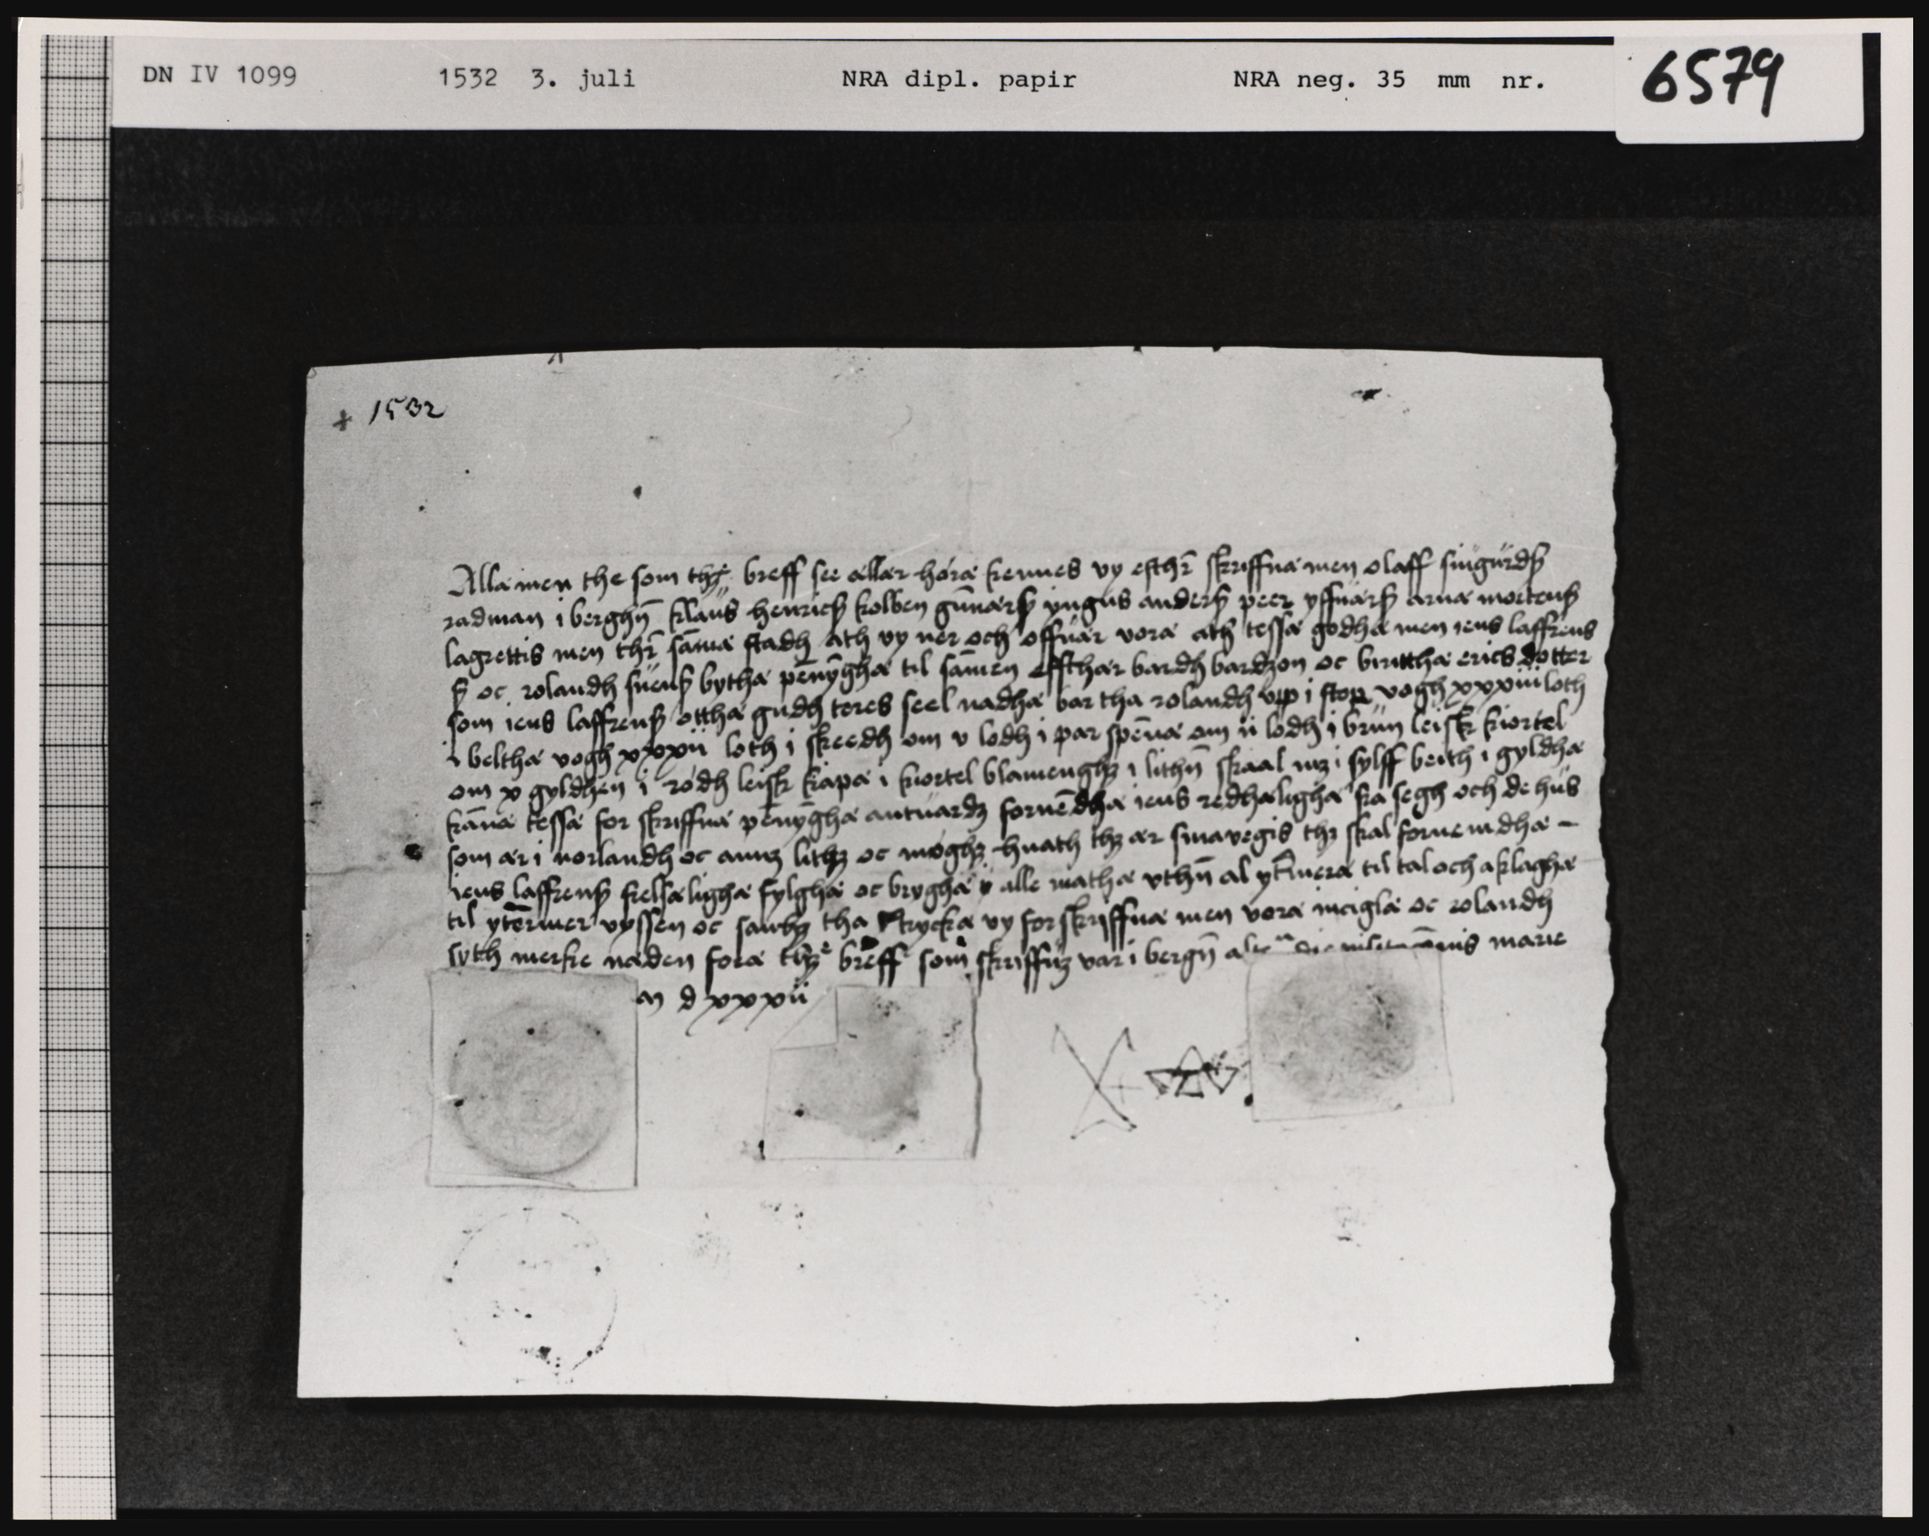 DN IV 1099 1532 3. juli NRA dipl. papir NRA neg. 35 mm nr. 6579
+ 1532
Alla men the som thz breff see ællar høræ kennes vy efthr̄ skriffna men olaff siugurdß
radman i berghn̄ klaus henricß kolben gūnarß yngus anderß peer yffuarß arnæ mortenß
lagrettis men thr̄ sāma stadh ath vy ner och offuar voræ ath tessæ godhæ men iens laffrens
ß oc rolandh suenß bythæ pēnyghæ til sāmen effthær bardh bardzon oc biritthæ erics dotter
som iens laffrenß øttha gudh teres seel nadhæ bar tha rolandh vp i stop vogh xxxiiii loth
i belthæ vogh xxxii loth i skeedh om v lodh i par spēnæ om ii lodh i brun leisk kiortel
om x gyldhen i rødh leisk kapa i kiortel blamenghz i lithn̄ skaal mz i sylff beith i gyldhæ
kānæ tessæ for skriffna pēnyghæ antuardz fornēdhæ iens redhæligha fra segh och de hus
som ær i norlandh oc annz lithz oc møghz huath thz ær smavegis thz skal fornemdhæ –
iens laffrenß frelsæligha fylghæ oc bryghæ i alle mathæ vthn̄ al ytmeræ til tal och aklaghæ
til ytermer vyssen oc santhz tha trycka vy for skriffna men voræ inciglæ oc rolandh
syth merke næden foræ thz breff som skriffuz var i bergn̄ marie
m d xxxii